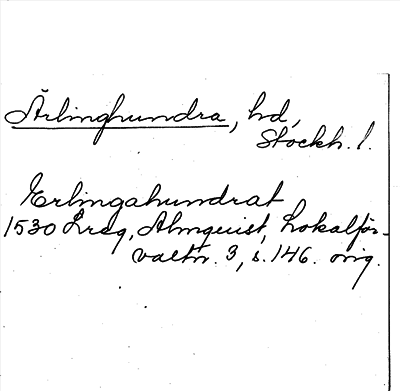 Ärlinghundra, hd,
Stockh. l.
Erlingahundrat
1530 Lreg, Almquist, Lokalför-
valtn. 3, s. 146. orig.